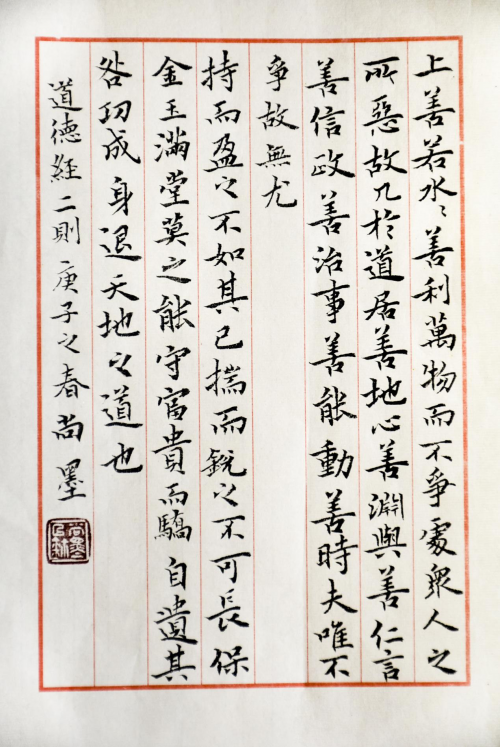 上善若水〻善利萬物而不爭處眾人之
所惡故几於道居善地心善淵與善仁言
善信政善治事善能動善時夫唯不
爭故無尤
持而盈之不如其已揣而銳之不可長保
金玉滿堂莫之能守富貴而驕自遺其
咎功成身退天地之道也
道德經二則庚子之春尚墨